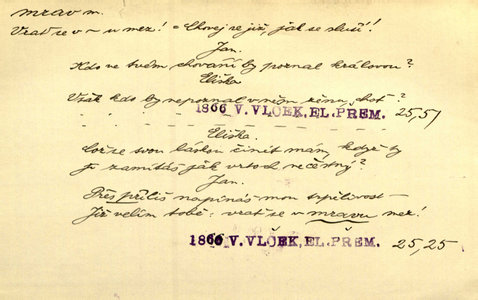 mrav m.
Vrať se v ~ u mez! = Chovej se již, jak se sluší!
Jan.
Kdo ve tvém chování by poznal královou?
Eliška
Však kdo by nepoznal v něm ženu, choť?
1866 V. VLČEK, EL. PŘEM. 25,51
Eliška.
Což se svou láskou činit mám, když ty
ji zamítáš jak vrtoch nečestný?
Jan.
Přes příliš napínáš mou trpělivost –
Již velím tobě: vrať se v mravu mez!
1866 V. VLČEK, EL. PŘEM. 25,25